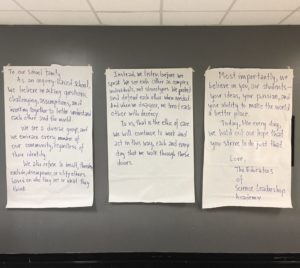 To our school family,
As an inquiry-driven school,
we believe in asking questions,
challenging assumptions, and in
working together to better understand
each other and the world.
We are a diverse group, and
we embrace every member of
our community, regardless of
their identity.
We also refuse to insult,
exclude, disempower, or vilify others
based on who they are or what they
think.
Instead, we listen before we
speak. We see each other as complex
individuals, not stereotypes. We protect
and defend each other when needed.
And when we disagree, we treat each
other with decency.
To us, that is the ethic of care.
We will continue to work and
act in this way, each and every
day that we walk through these
doors.
Most importantly, we
believe in you, our students—
your ideas, your passion, and
your ability to make the world
a better place.
Today, like every day,
we hold out hope that
you strive to do just that.
Love,
The Educators
of
Science Leadership
Academy